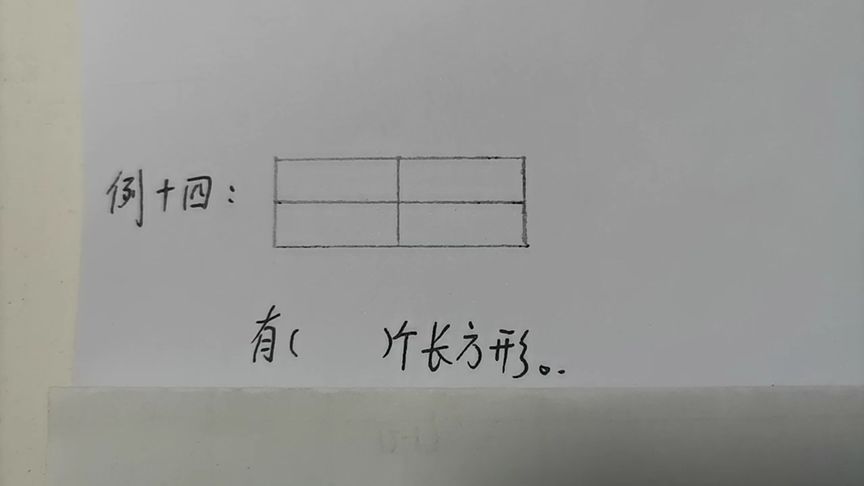 例十四：
有(    )个长方形。